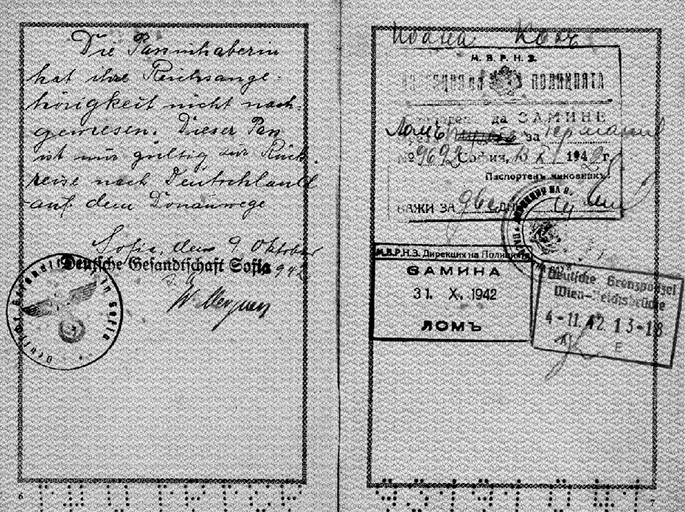 Die Passinhaberin
hat ihre Reichsange-
hörigkeit nicht nach-
gewiesen. Dieser Pass
ist nur gültig zur Rück-
reise nach Deutschland
auf dem Donauwege
Sofia, den 9. Oktober
Deutsche Gesandtschaft Sofia 1942
6
М.В.Р.Н.З.
ПОЛИЦИЯТА
да ЗАМИНЕ
Ломъ за Германия
№ 9692 София, 194 г.
Паспортенъ чиновникъ:
ВАЖИ ЗА
М.В.Р.Н.З. Дирекция на Полицията
ЗАМИНА
31. X. 1942
ЛОМЪ
Deutsche Grenzpolizei
Wien-Reichsbrücke
4-11.42 13-18
E
7